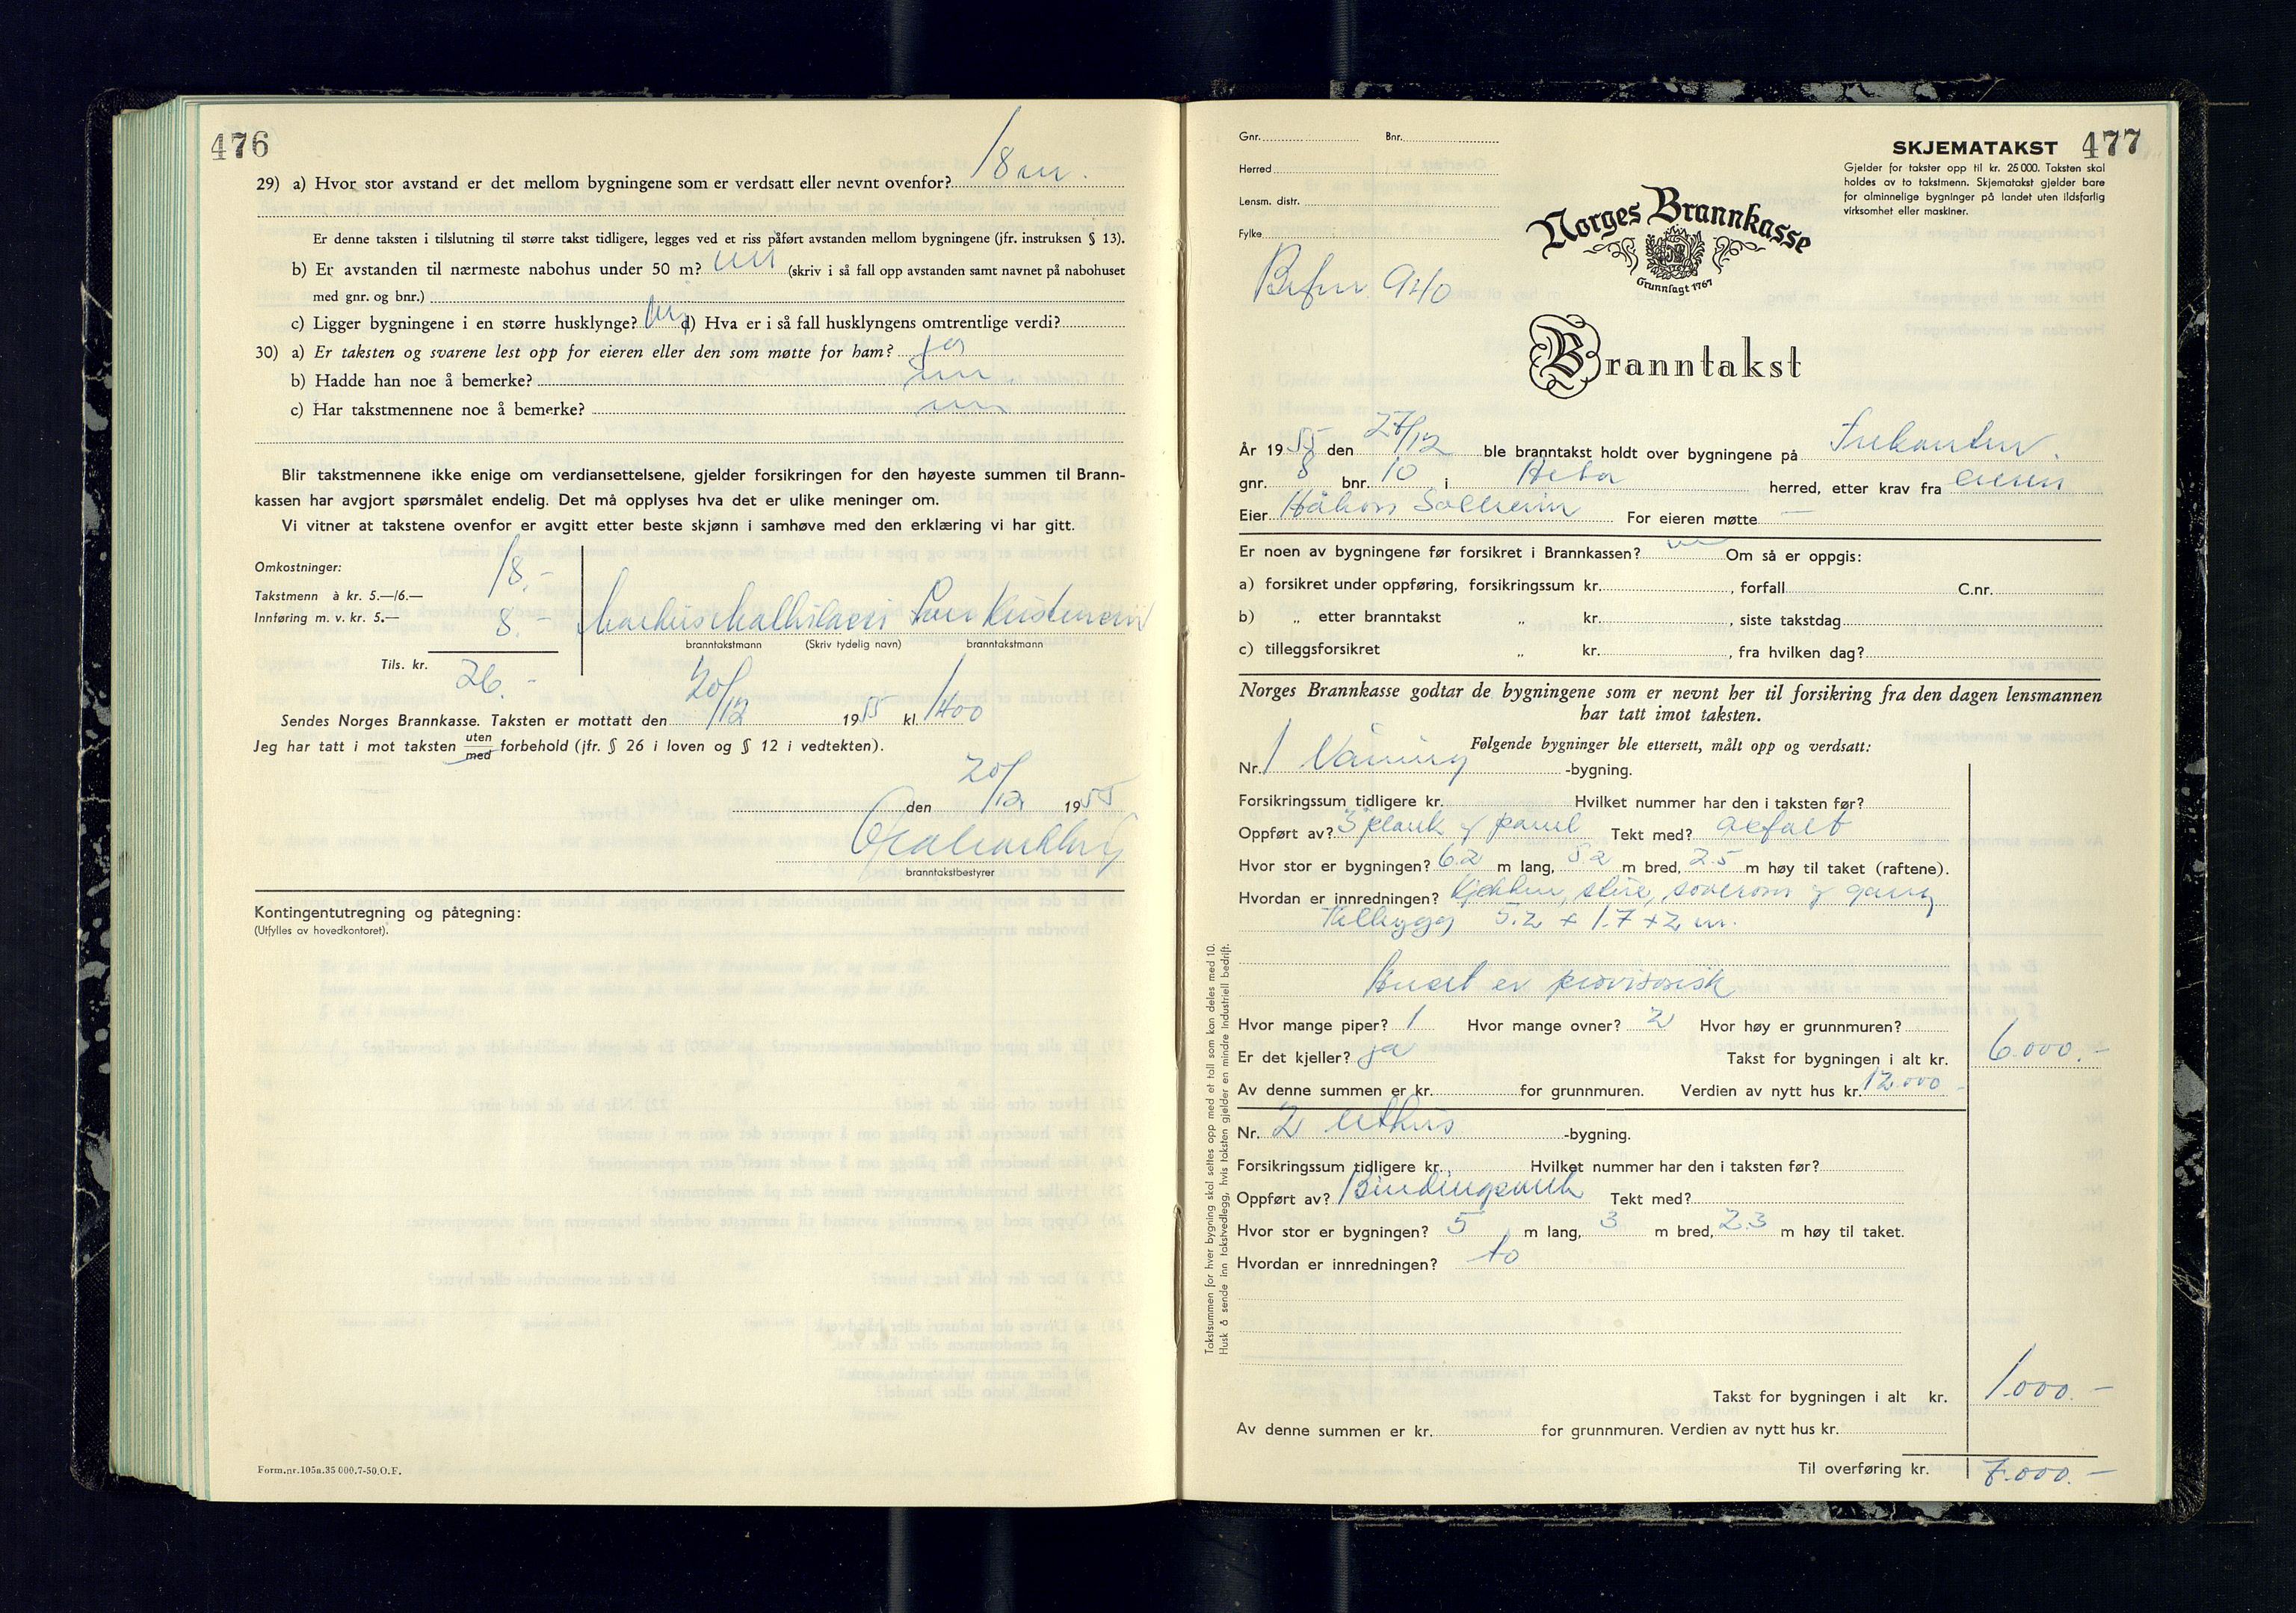 476
29) a) Hvor stor avstand er det mellom bygningene som er verdsatt eller nevnt ovenfor? 18 m.
Er denne taksten i tilslutning til større takst tidligere, legges ved et riss påført avstanden mellom bygningene (jfr. instruksen § 13).
b) Er avstanden til nærmeste nabohus under 50 m? nei (skriv i så fall opp avstanden samt navnet på nabohuset
med gnr. og bnr.)
c) Ligger bygningene i en større husklynge? nei d) Hva er i så fall husklyngens omtrentlige verdi?
30) a) Er taksten og svarene lest opp for eieren eller den som møtte for ham? ja
b) Hadde han noe å bemerke? nei.
c) Har takstmennene noe å bemerke? nei
Blir takstmennene ikke enige om verdiansettelsene, gjelder forsikringen for den høyeste summen til Brann-
kassen har avgjort spørsmålet endelig. Det må opplyses hva det er ulike meninger om.
Vi vitner at takstene ovenfor er avgitt etter beste skjønn i samhøve med den erklæring vi har gitt.
Omkostninger:
Takstmenn à kr. 5.—/6.— 18.-
Innføring m. v. kr. 5.— 8.-
branntakstmann (Skriv tydelig navn) branntakstmann
Tils. kr. 26.-
Sendes Norges Brannkasse. Taksten er mottatt den 20/12 1955 kl. 1400
Jeg har tatt i mot taksten uten/med forbehold (jfr. § 26 i loven og § 12 i vedtekten).
den 20/12 1955
branntakstbestyrer
Kontingentutregning og påtegning:
(Utfylles av hovedkontoret).
Form.nr.105a.35 000.7-50.O.F.
Gnr. Bnr.
Herred
Lensm. distr.
Fylke
940
SKJEMATAKST 477
Gjelder for takster opp til kr. 25 000. Taksten skal
holdes av to takstmenn. Skjematakst gjelder bare
for alminnelige bygninger på landet uten ildsfarlig
virksomhet eller maskiner.
Norges Brannkasse
Grunnlagt 1767
Branntakst
År 1955 den 27/12 ble branntakst holdt over bygningene på
gnr. 8 bnr. 10 i herred, etter krav fra eieren
Eier Håkon Solheim For eieren møtte —
Er noen av bygningene før forsikret i Brannkassen? Om så er oppgis:
a) forsikret under oppføring, forsikringssum kr. , forfall C.nr.
b) „ etter branntakst „ kr. , siste takstdag
c) tilleggsforsikret „ kr. , fra hvilken dag?
Norges Brannkasse godtar de bygningene som er nevnt her til forsikring fra den dagen lensmannen
har tatt imot taksten.
Følgende bygninger ble ettersett, målt opp og verdsatt:
Nr. 1 Våning -bygning.
Forsikringssum tidligere kr. Hvilket nummer har den i taksten før?
Oppført av? 3" plank & panel Tekt med? asfalt
Hvor stor er bygningen? 6.2 m lang, 5.2 m bred, 2.5 m høy til taket (raftene).
Hvordan er innredningen? Kjøkken, stue, soverom & gang
Tilbygg 5.2 + 1.7 + 2 m.
Huset er provisorisk
Hvor mange piper? 1 Hvor mange ovner? 2 Hvor høy er grunnmuren?
Er det kjeller? ja Takst for bygningen i alt kr. 6.000.-
Av denne summen er kr. for grunnmuren. Verdien av nytt hus kr. 12.000-
Nr. 2 Uthus -bygning.
Forsikringssum tidligere kr. Hvilket nummer har den i taksten før?
Oppført av? Bindingsverk Tekt med?
Hvor stor er bygningen? 5 m lang, 3 m bred, 2.3 m høy til taket.
Hvordan er innredningen? to
Takst for bygningen i alt kr. 1.000.-
Av denne summen er kr. for grunnmuren. Verdien av nytt hus kr.
Til overføring kr. 7.000.-
Takstsummen for hver bygning skal settes opp med et tall som kan deles med 10.
Husk å sende inn takstvedlegg, hvis taksten gjelder en mindre industriell bedrift.